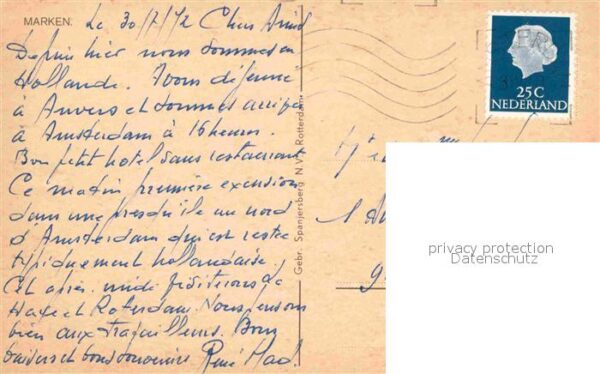 MARKEN.
Le 30/7/72 Chers Amis
Depuis hier nous sommes en
Hollande. Avons déjeuné
à Anvers et sommes arrivés
à Amsterdam à 16 heures.
Bon petit hotel sans restaurant
Ce matin première excursion
dans une presqu'ile au nord
d'Amsterdam qui est restée
typiquement hollandaise.
Cet après-midi visiterons La
Haye et Roterdam. Nous pensons
bien aux travailleurs. Bons
baisers et bons souvenirs René
Gebr. Spanjersberg N.V., Rotterdam
25 C
NEDERLAND
privacy protection
Datenschutz